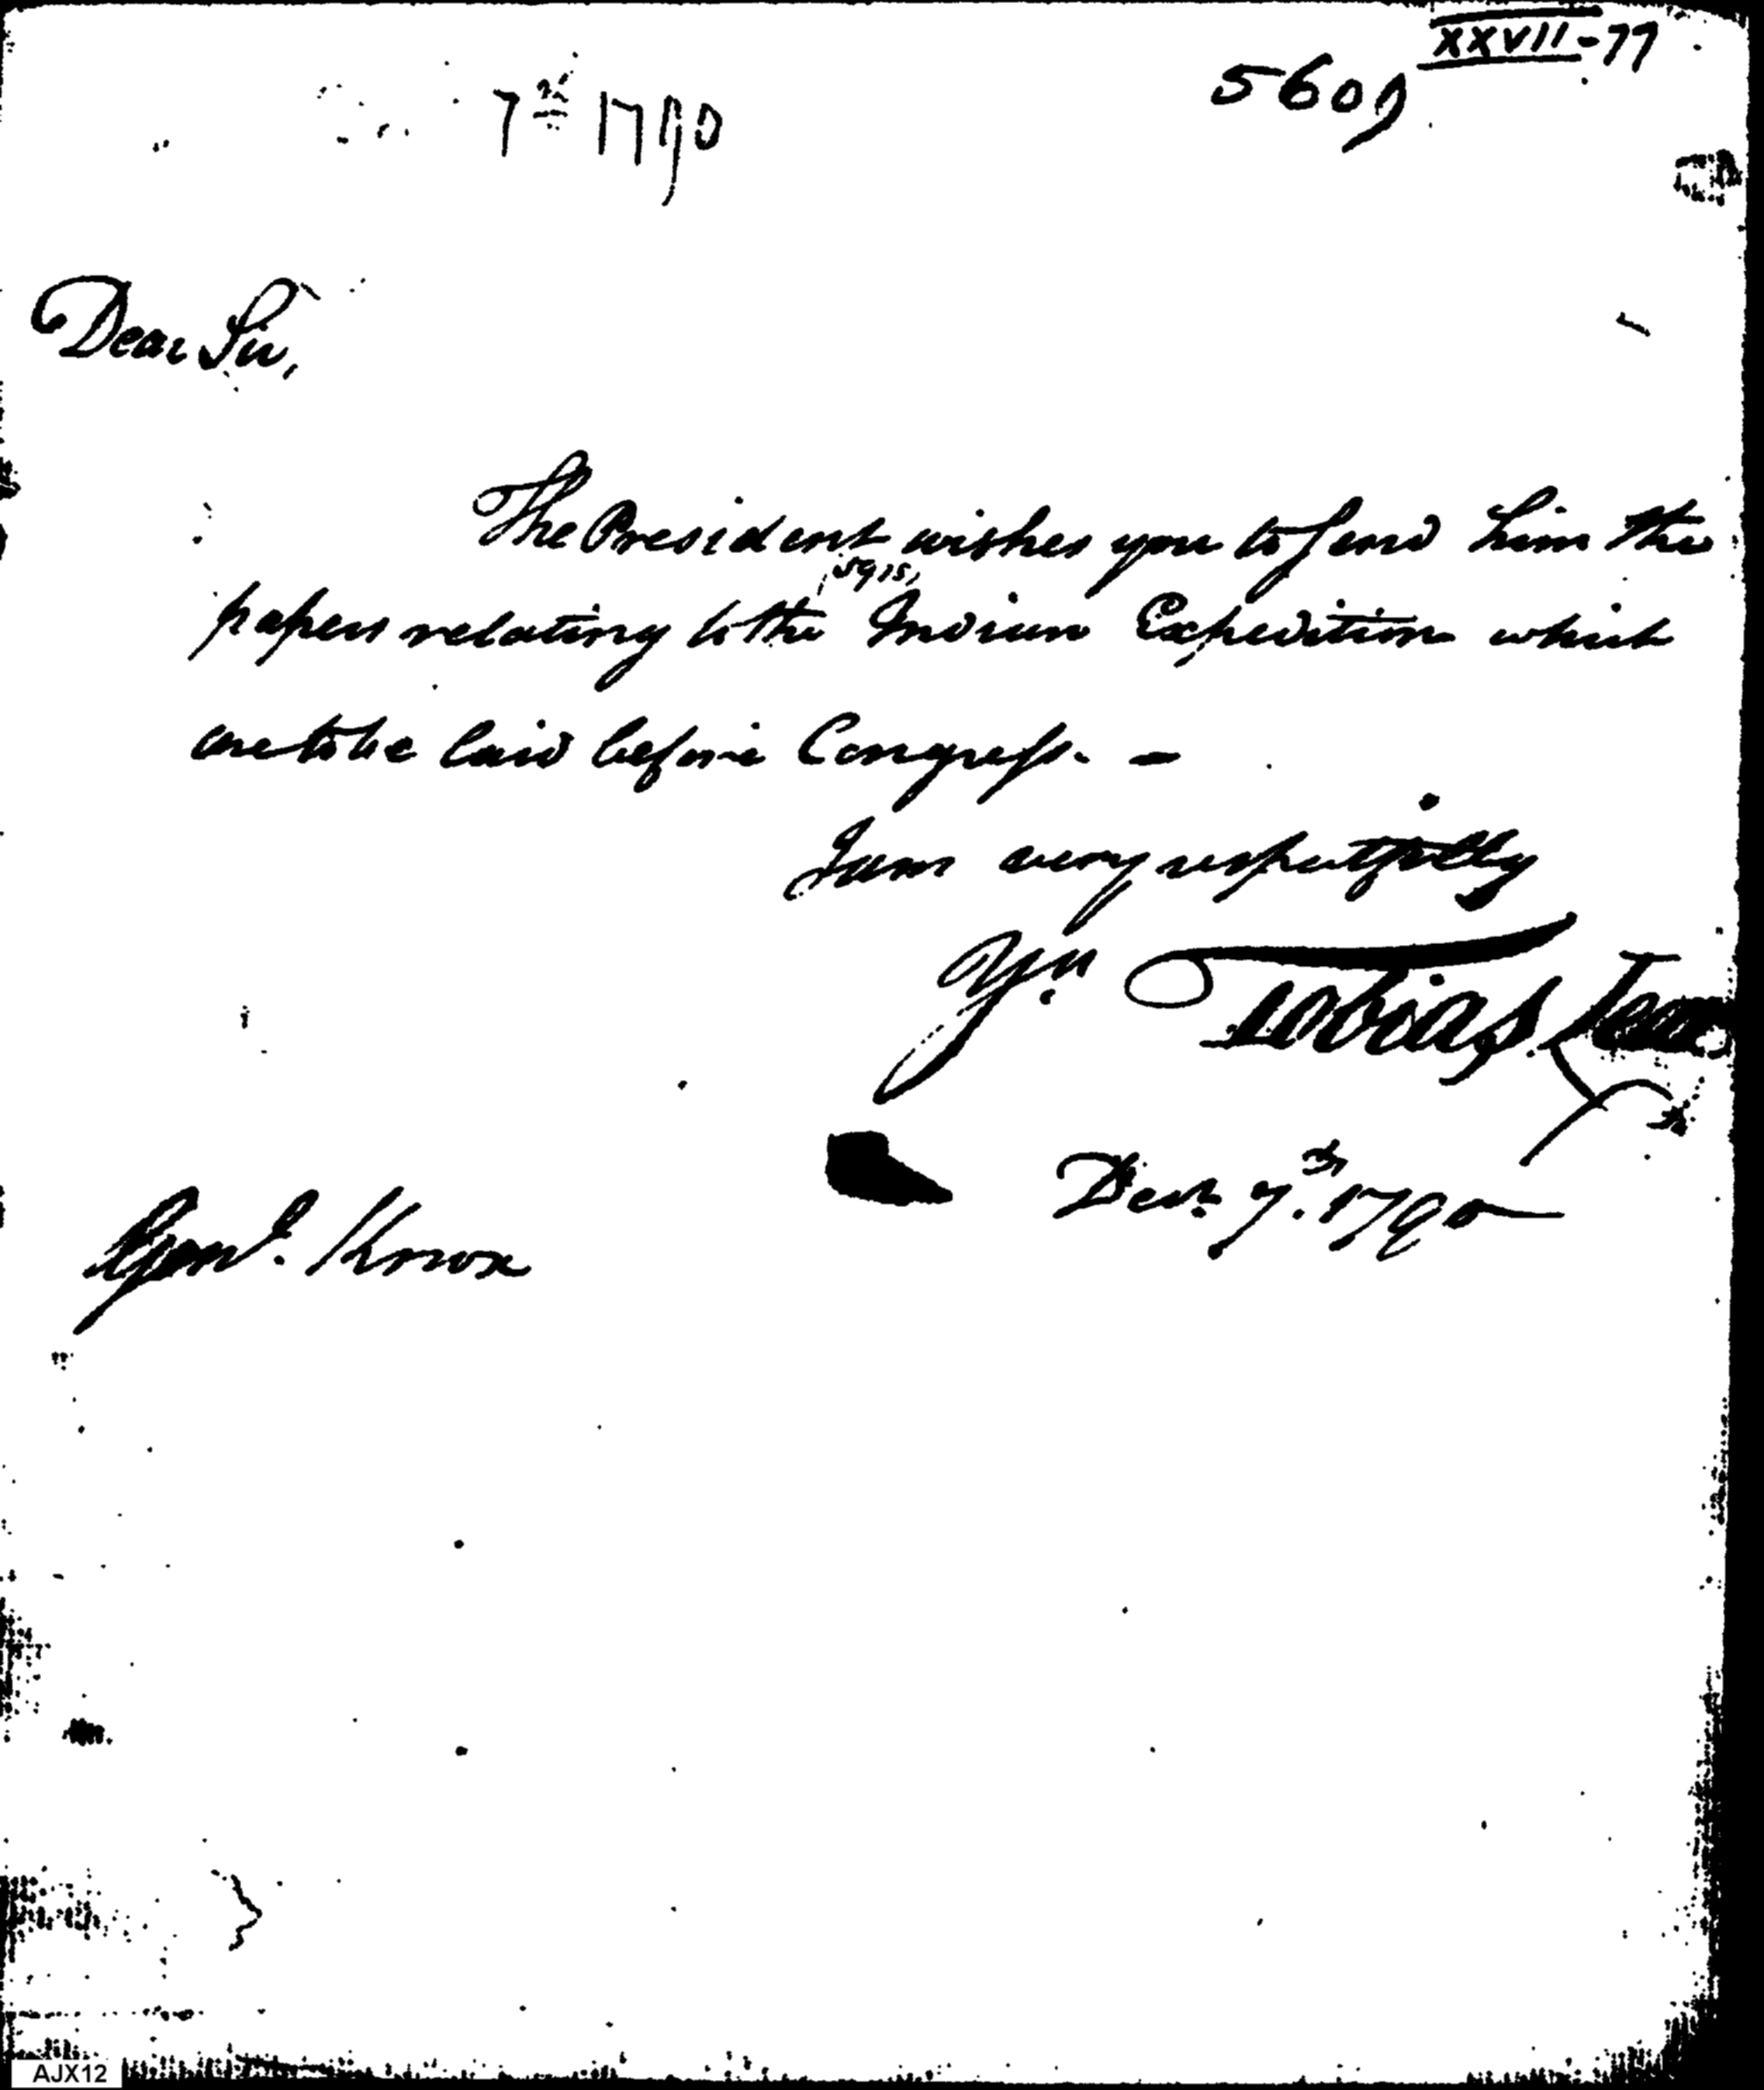 XXVII-77
5609
7th 1790
Dear Sir,
The President wishes you to send him the
papers relating to the Indian Expedition which
are to be laid before Congress. —
I am very respectfully
Yrs. Tobias Lear
Decr. 7th. 1790
Genl. Knox
AJX12